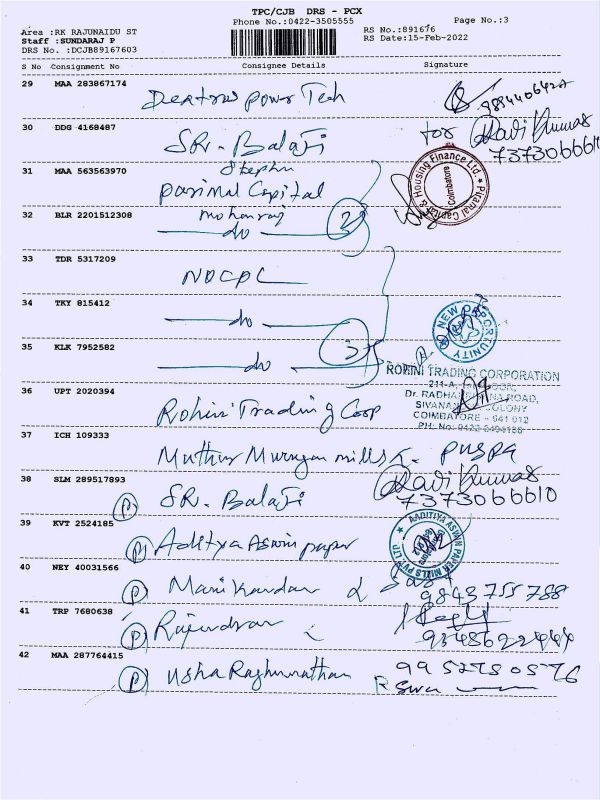 TPC/CJB DRS - PCX
Phone No.:0422-3505555
Page No.:3
Area :RK RAJUNAIDU ST
RS No.:891676
Staff :SUNDARAJ P
RS Date:15-Feb-2022
DRS No. :DCJB89167603
S No Consignment No Consignee Details Signature
29 MAA 283867174
Power Tech
30 DDG 4168487
SR. Balaji
for Ravi Kumar
7373066610
31 MAA 563563970
Capital
Piramal Capital & Housing Finance Ltd
Coimbatore
32 BLR 2201512308
Mohanraj
do
2
33 TDR 5317209
NDCPC
34 TKY 815412
do
NEW OPPORTUNITY
35 KLK 7952582
do
3
ROHINI TRADING CORPORATION
36 UPT 2020394
Rohini Trading Corp
COIMBATORE - 641 012
PH: No: 0422
37 ICH 109333
Muthu Murugan mills
38 SLM 289517893
P SR. Balaji
Ravi Kumar
7373066610
39 KVT 2524185
P Aditya Aswin paper
AADITIYA ASWIN PAPER MILLS PVT LTD
40 NEY 40031566
P Manikandan
9843755788
41 TRP 7680638
P Rajendran
42 MAA 287764415
P Usha Raghunathan